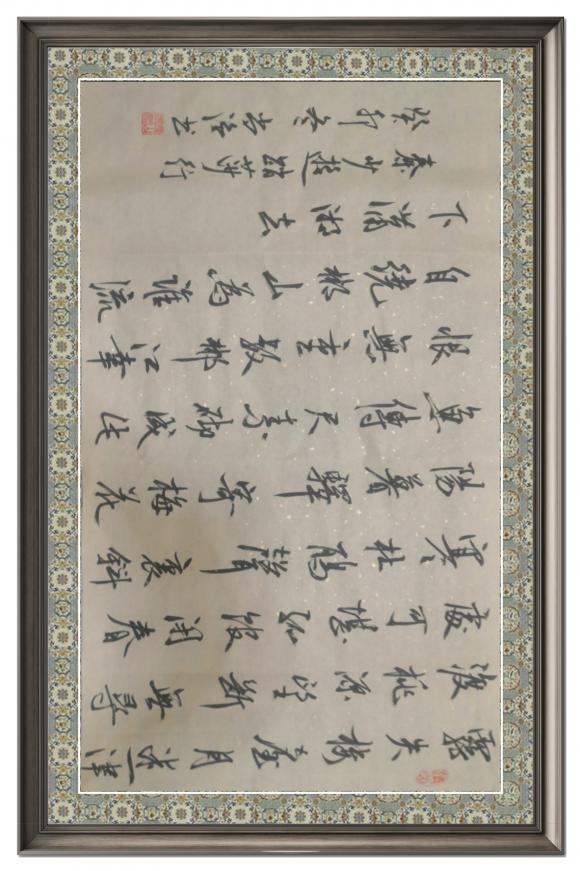 霧失樓臺月迷津
渡桃源望斷無尋
處可堪孤館閉春
寒杜鵑聲裏斜
陽暮驛寄梅花
魚傳尺素砌成此
恨無重數郴江幸
自繞郴山為誰流
下瀟湘去
秦少遊踏莎行
癸卯冬书